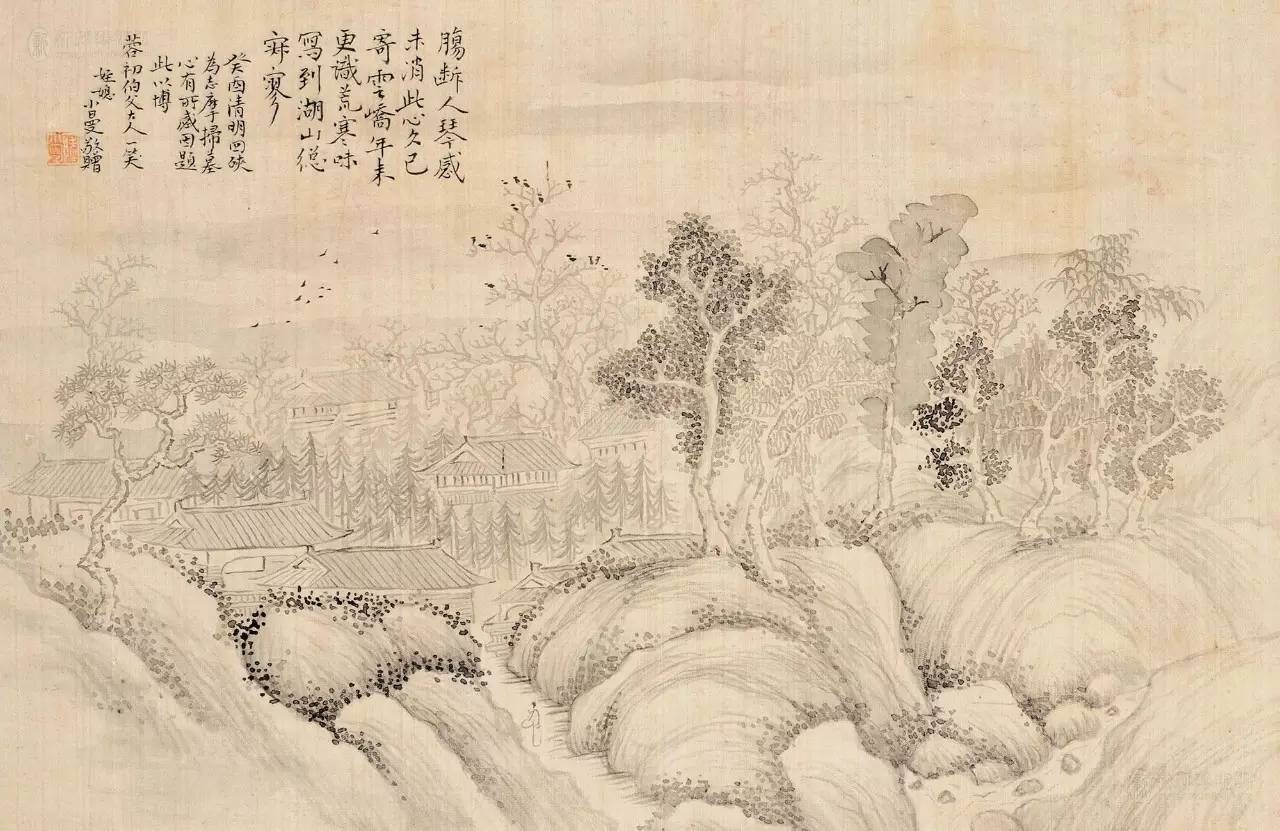 腸斷人琴感
未消此心久已
寄雲嶠年來
更識荒寒味
寫到湖山總
寂寥
癸酉清明回硤
為志摩掃墓
心有所感因題
此以博
蓉初伯父大人一笑
姪媳
小曼敬贈